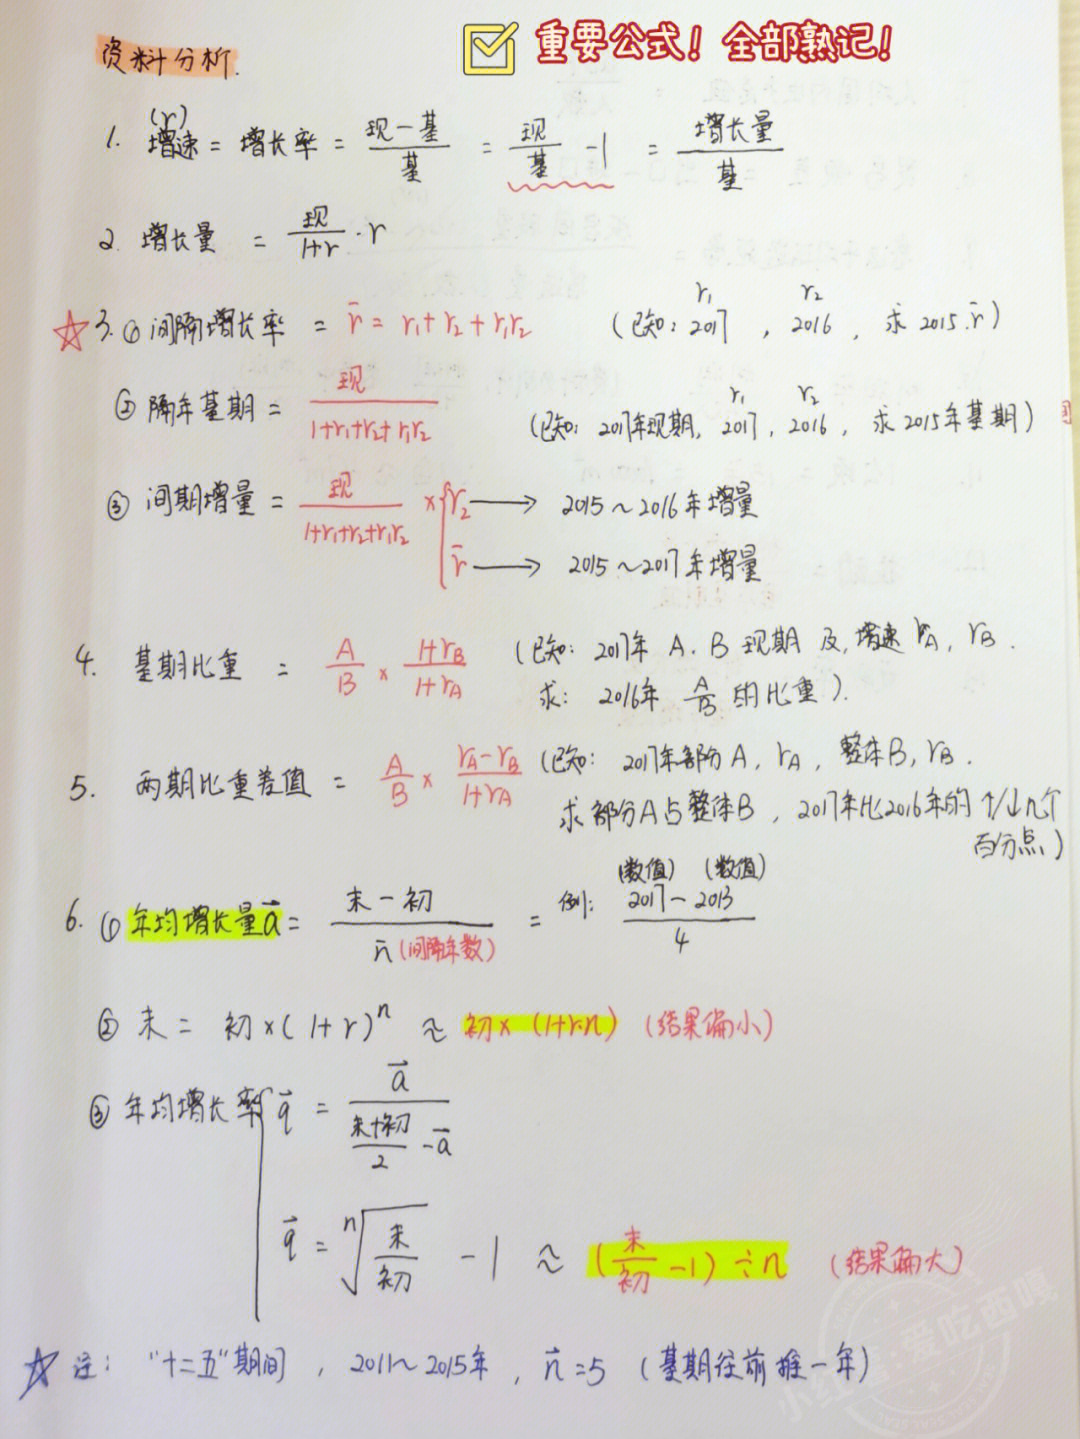 重要公式！全部熟记！
资料分析.
1. 增速(r) = 增长率 = (现-基)/基 = 现/基 -1 = 增长量/基
2. 增长量 = 现/(1+r) · r
☆3. ① 间隔增长率 = r̄ = r₁+r₂+r₁r₂ (已知: r₁ 2017, r₂ 2016, 求 2015 r̄)
② 隔年基期 = 现/(1+r₁+r₂+r₁r₂) (已知: 2017年现期, r₁ 2017, r₂ 2016, 求2015年基期)
③ 间期增量 = 现/(1+r₁+r₂+r₁r₂) × { r₂ → 2015～2016年增量
r̄ → 2015～2017年增量
4. 基期比重 = A/B × (1+rB)/(1+rA) (已知: 2017年 A.B 现期 及增速 rA, rB.
求: 2016年 A/B 的比重).
5. 两期比重差值 = A/B × (rA-rB)/(1+rA) (已知: 2017年部分A, rA, 整体B, rB.
求部分A占整体B, 2017年比2016年的↑/↓几个
百分点)
6. ① 年均增长量a⃗ = (末-初)/n̄(间隔年数) = 例: (2017(数值)-2013(数值))/4
② 末 = 初×(1+r)ⁿ ≈ 初×(1+r·n) (结果偏小)
③ 年均增长率 { q⃗ = a⃗/((末+初)/2 - a⃗)
q⃗ = ⁿ√(末/初) -1 ≈ (末/初 -1)÷n (结果偏大)
☆ 注: "十二五"期间, 2011～2015年, n⃗=5 (基期往前推一年)